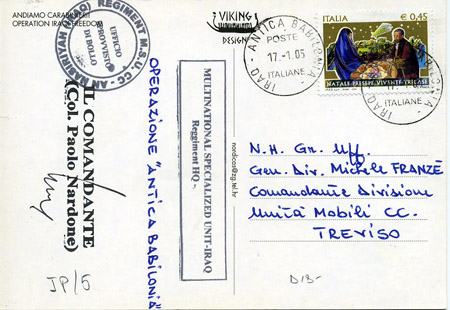 ANDIAMO CARABINIERI
OPERATION IRAQI FREEDOM
REGIMENT M.S.U. CC - AN NASIRIYAH (IRAQ)
UFFICIO
SPROVVISTO
DI BOLLO
IL COMANDANTE
(Col. Paolo Nardone)
JP/5
OPERAZIONE "ANTICA BABILONIA"
MULTINATIONAL SPECIALIZED UNIT-IRAQ
Regiment HQ -
VIKING
DESIGN
nordica@zg.tel.hr
IRAQ - ANTICA BABILONIA
POSTE
17-1.05
ITALIANE
ITALIA € 0,45
NATALE-PRESEPE VIVENTE-TRICASE
IRAQ
ITALIANE
N.H. Gr. Uff.
Gen. Div. Michele FRANZÈ
Comandante Divisione
Unità Mobili CC.
TREVISO